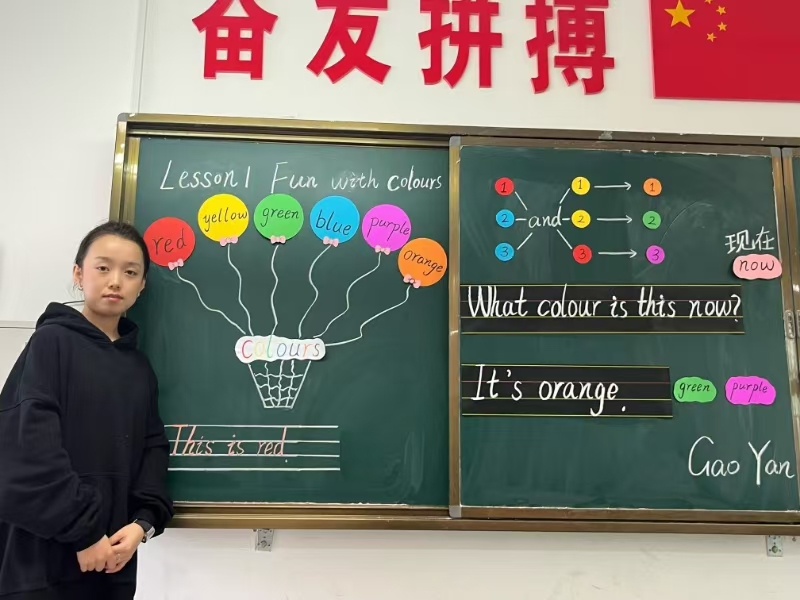 奋发拼搏
Lesson 1 Fun with colours
red
yellow
green
blue
purple
orange
colours
This is red.
1 1 → 1
2 and 2 → 2
3 3 → 3
现在
now
What colour is this now?
It's orange.
green
purple
Gao Yan